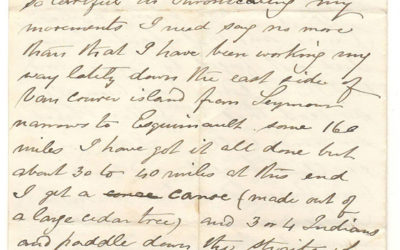 so careful in chronicling my
movements I need say no more
than that I have been working my
way lately down the east side of
Van couver island from Seymour
narrows to Esquimault some 160
miles I have got it all done but
about 30 to 40 miles at this end
I get a canoe (made out of
a large cedar tree) and 3 or 4 Indians
and paddle down the straits